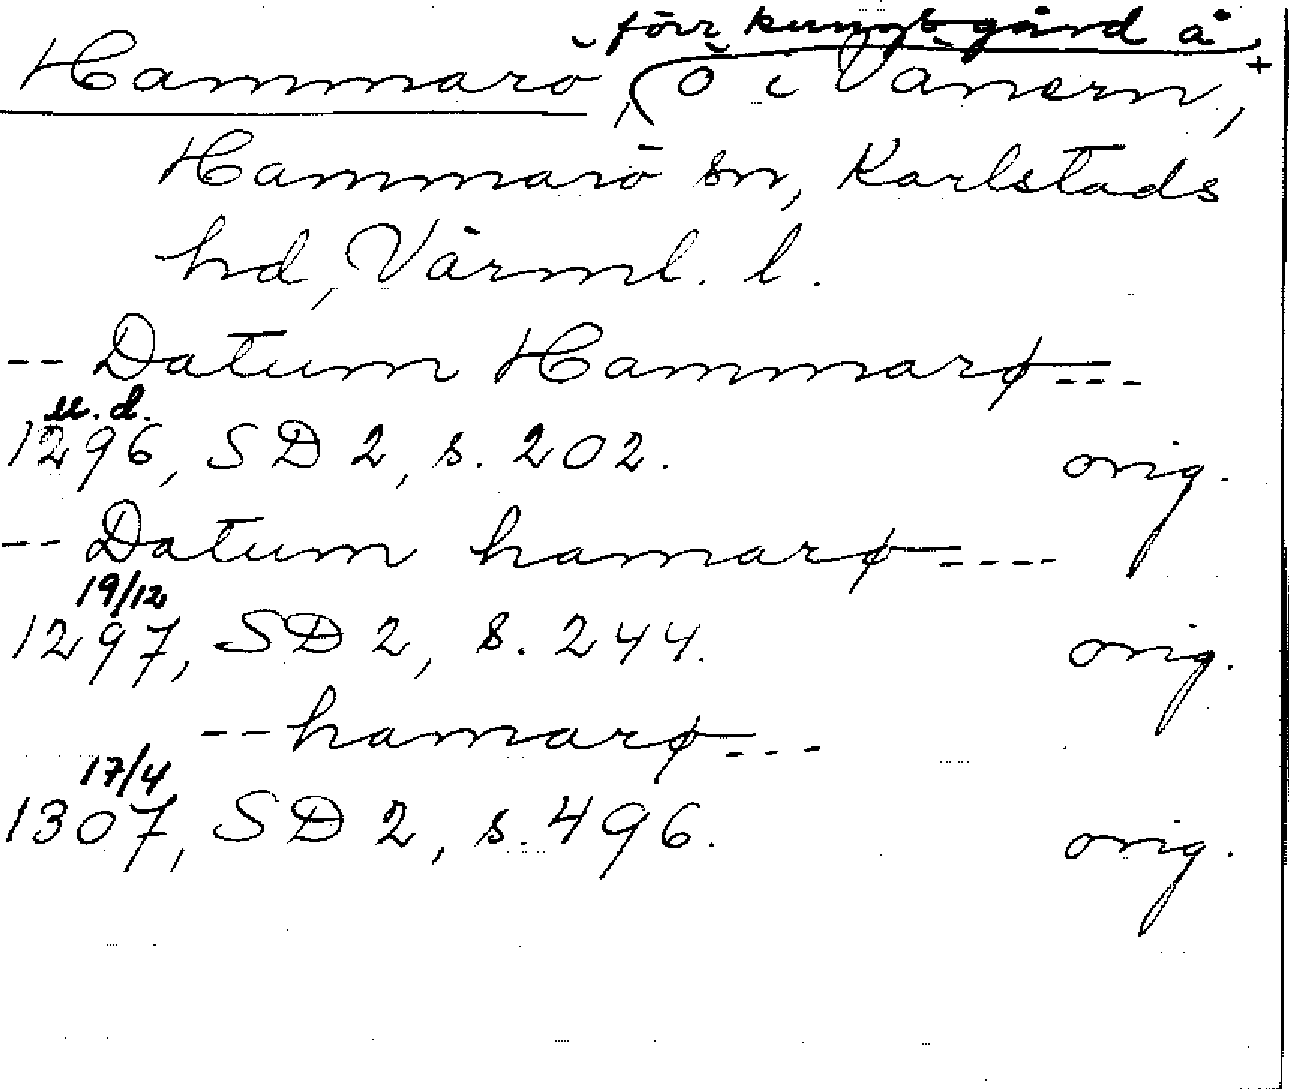 förr kungsgård å
Hammarö, (ö i Vänern, +
Hammarö sn, Karlstads
hd, Värml. l.
-- Datum Hammarø---
u. d.
1296, SD 2, s. 202. orig.
-- Datum hamarø----
19/12
1297, SD 2, s. 244. orig.
-- hamarø---
17/4
1307, SD 2, s. 496. orig.